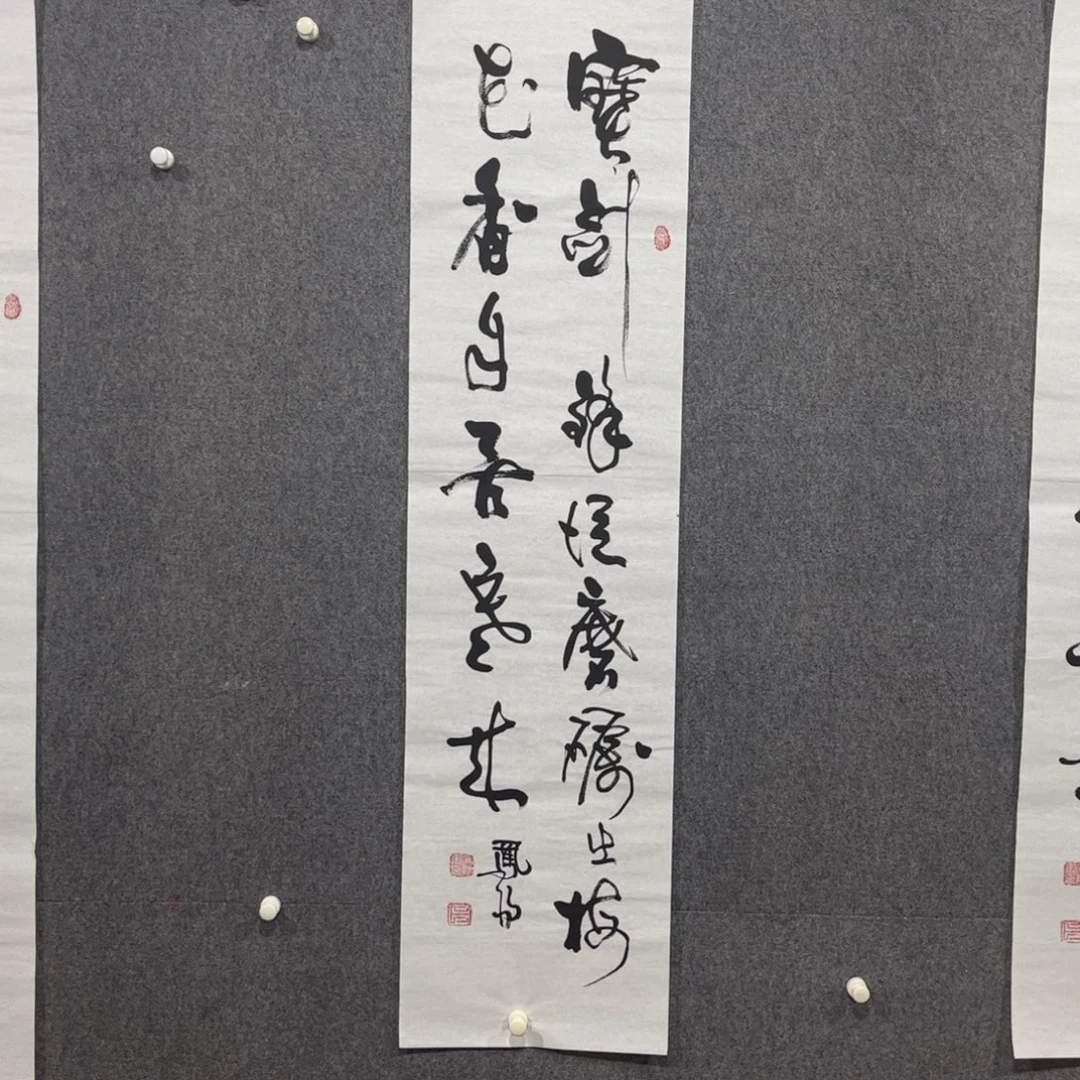 寶劍鋒從磨礪出梅
花香自苦寒來